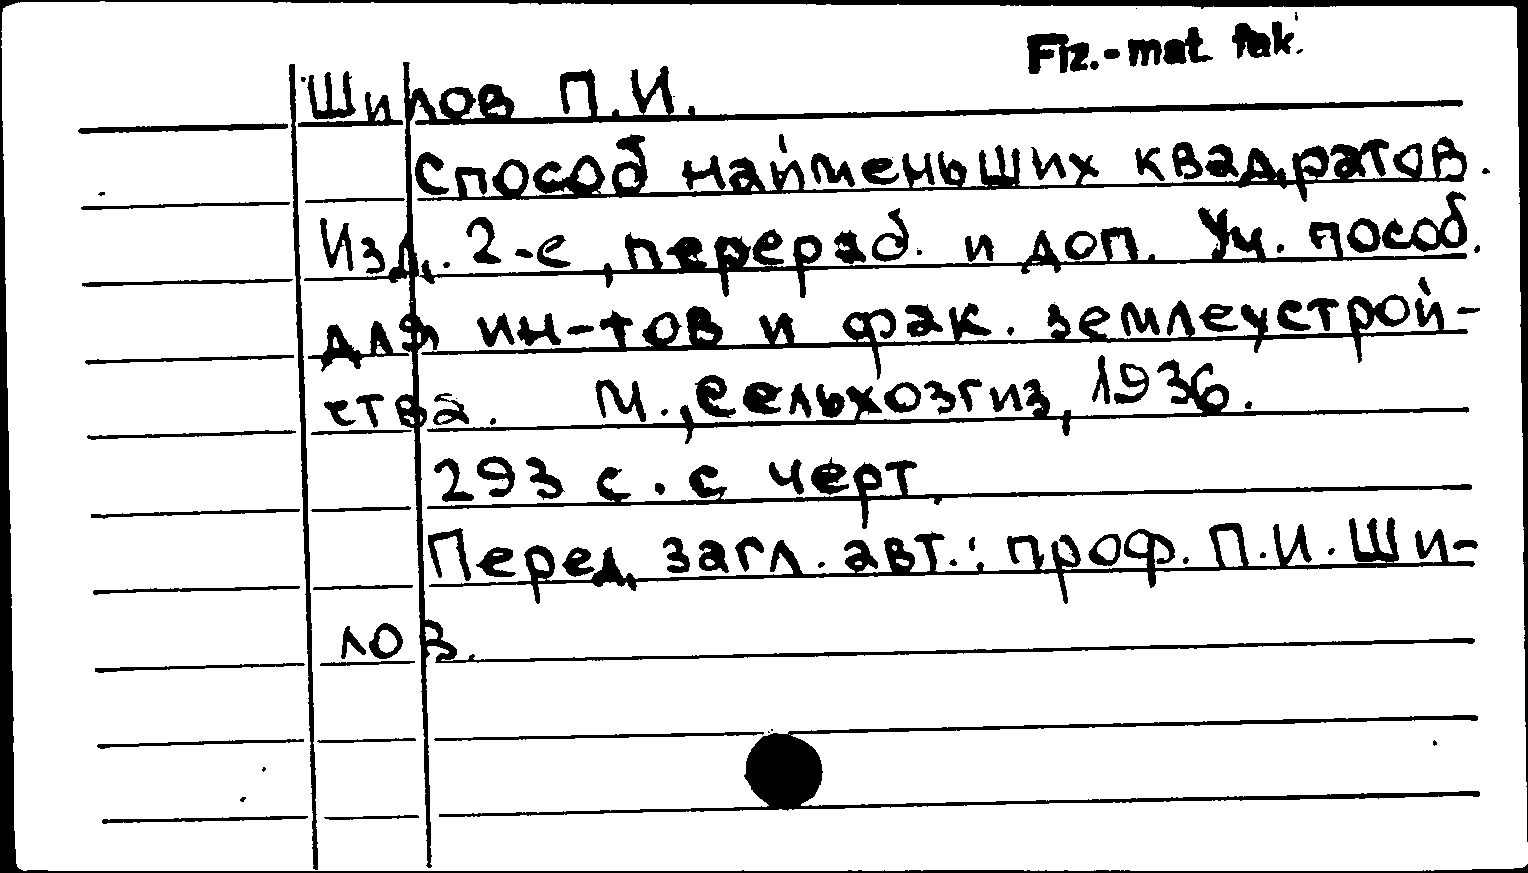 Fiz.-mat. fak.
Шилов П.И.
Способ наименьших квадратов.
Изд. 2-е, перераб. и доп. Уч. пособ.
для ин-тов и фак. землеустрой-
ства. М., Сельхозгиз, 1936.
293 с. с черт.
Перед загл. авт.: проф. П.И. Ши-
лов.